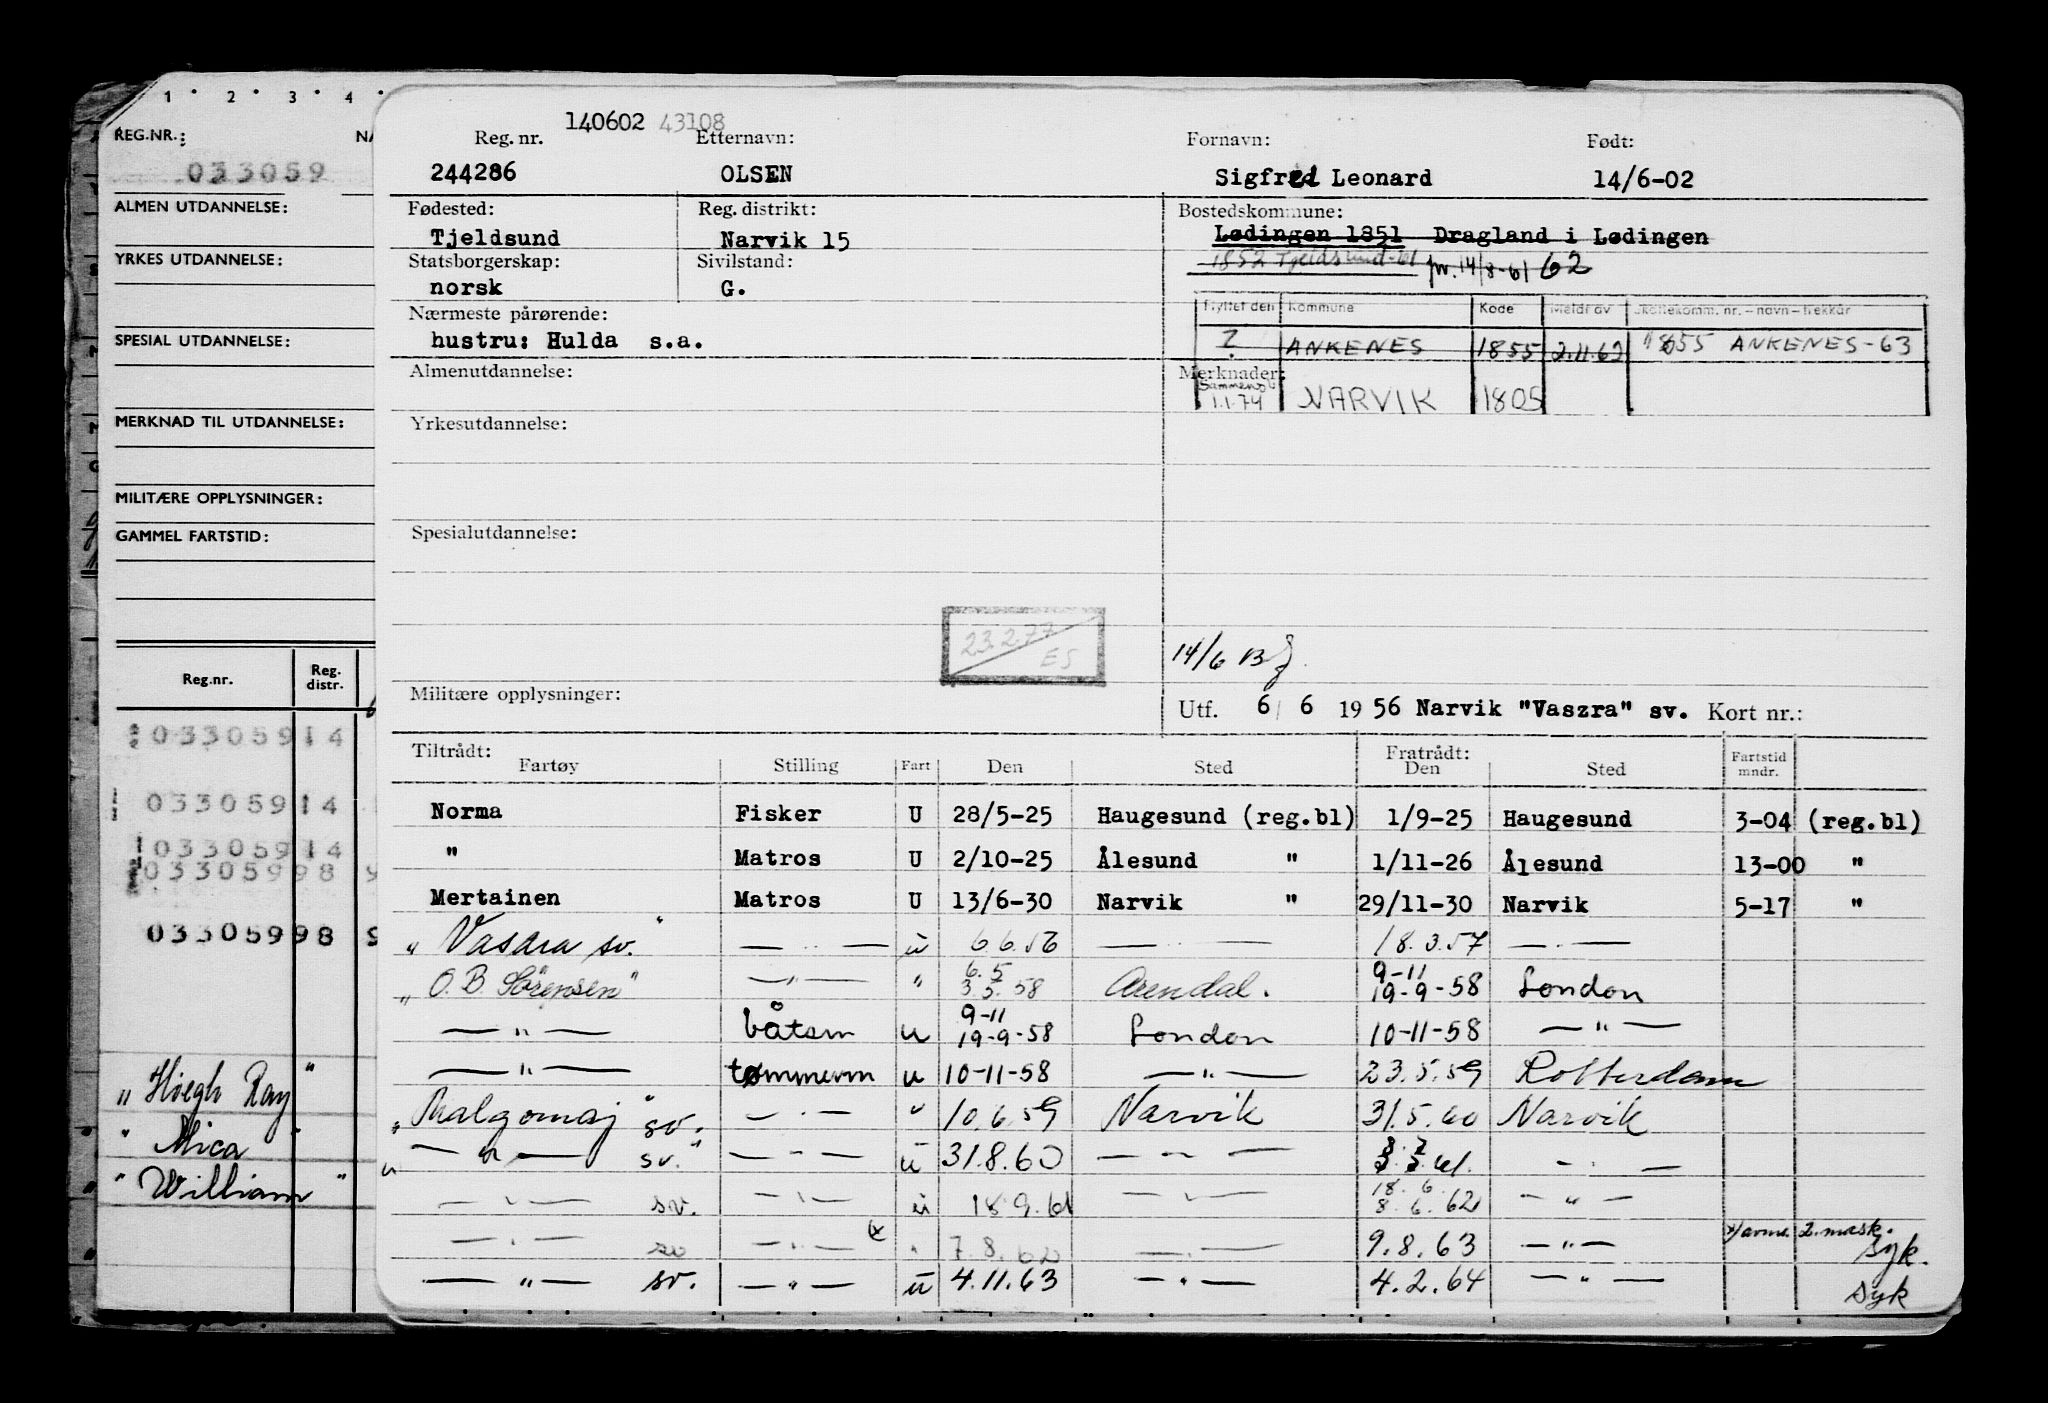 1 2 3 4
REG.NR.:
033059
ALMEN UTDANNELSE:
YRKES UTDANNELSE:
SPESIAL UTDANNELSE:
MERKNAD TIL UTDANNELSE:
MILITÆRE OPPLYSNINGER:
GAMMEL FARTSTID:
Reg.nr. Reg. distr.
033059 14
033059 14
033059 14
033059 98
033059 98
"Høegh Ray"
"Mica"
"William"
140602 43108
Reg. nr. Etternavn: Fornavn: Født:
244286 OLSEN Sigfred Leonard 14/6-02
Fødested: Reg. distrikt: Bostedskommune:
Tjeldsund Narvik 15 Lødingen 1851 Dragland i Lødingen
Statsborgerskap: Sivilstand: 1852 Tjeldsund-61 14/8-61 62
norsk G.
Flyttet den Kommune Kode Meldt av Skattekomm. nr. - navn - trekkår
Nærmeste pårørende:
hustru: Hulda s.a. ? ANKENES 1855 2.11.63 1855 ANKENES-63
Almenutdannelse: Merknader:
1.1.74 NARVIK 1805
Yrkesutdannelse:
Spesialutdannelse:
23.2.77
ES
14/6
Militære opplysninger:
Utf. 6/6 1956 Narvik "Vaszra" sv. Kort nr.:
Tiltrådt: Fratrådt:
Fartøy Stilling Fart Den Sted Den Sted Fartstid mndr.
Norma Fisker U 28/5-25 Haugesund (reg.bl) 1/9-25 Haugesund 3-04 (reg.bl)
" Matros U 2/10-25 Ålesund " 1/11-26 Ålesund 13-00 "
Mertainen Matros U 13/6-30 Narvik " 29/11-30 Narvik 5-17 "
"Vasara sv." — " — u 6.6.56 — " — 18.3.57 — " —
"O.B. Sörensen" — " — " 6.5 3.5.58 Arendal. 9-11 19-9-58 London
— " — båtsm u 9-11 19-9-58 London 10-11-58 — " —
— " — tømmerm u 10-11-58 — " — 23.5.59 Rotterdam
"Malgomaj" sv. — " — " 10.6.59 Narvik 31.5.60 Narvik
— " — sv." — " — u 31.8.60 — " — 8.2 3.3.61. — " —
— " — sv. — " — u 18.9.61 — " — 18.6. 8.6.62 — " —
— " — sv — " — x) " 7.8.62 — " — 9.8.63 — " — x) avm. 2. mask. syk.
— " — sv. — " — u 4.11.63 — " — 4.2.64 — " — syk